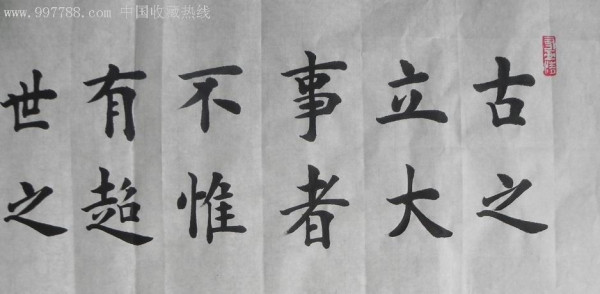 www.997788.com 中国收藏热线
古之
立大
事者
不惟
有超
世之